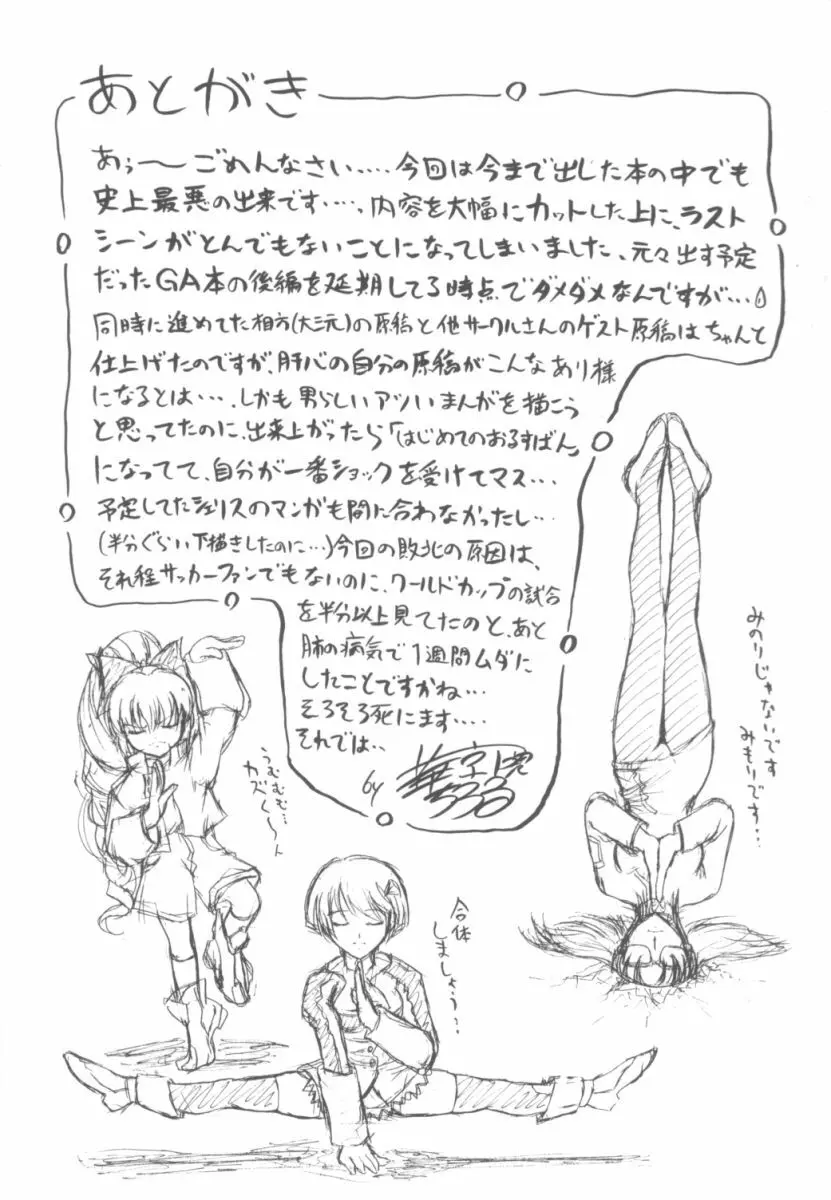 あとがき
あぅ〜ごめんなさい‥‥今回は今まで出した本の中でも
史上最悪の出来です‥‥、内容を大幅にカットした上に、ラスト
シーンがとんでもないことになってしまいました、元々出す予定
だったGA本の後編を延期してる時点でダメダメなんですが‥‥
同時に進めてた相方(大三元)の原稿と他サークルさんのゲスト原稿はちゃんと
仕上げたのですが、肝心の自分の原稿がこんなあり様
になるとは‥‥、しかも男らしいアツいまんがを描こう
と思ってたのに、出来上がったら「はじめてのおるすばん」
になってて、自分が一番ショックを受けてマス‥‥
予定してたシェリスのマンガも間に合わなかったし‥‥
(半分ぐらい下描きしたのに‥‥)今回の敗北の原因は、
それ程サッカーファンでもないのに、ワールドカップの試合
を半分以上見てたのと、あと
肺の病気で1週間ムダに
したことですかね‥‥
そろそろ死にます‥‥
それでは‥
by
みのりじゃないです
みもりです‥
うむむむ‥
カズく〜ん
合体
しましょう‥?